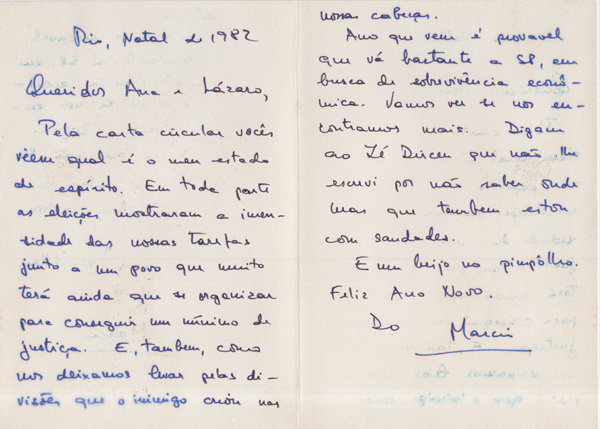 Rio, Natal de 1982
Queridos Ana e Lázaro,
Pela carta circular vocês
vêem qual é o meu estado
de espírito. Em toda parte
as eleições mostraram a imen-
sidade das nossas tarefas
junto a um povo que muito
terá ainda que se organizar
para conseguir um mínimo de
justiça. E, tambem, como
nos deixamos levar pelas di-
visões que o inimigo criou nas
nossas cabeças.
Ano que vem é provavel
que vá bastante a SP, em
busca de sobrevivência econô-
mica. Vamos ver se nos en-
contramos mais. Digam
ao Zé Dirceu que não lhe
escrevi por não saber onde
mas que tambem estou
com saudades.
E um beijo no pimpôlho.
Feliz Ano Novo
Do Marcio